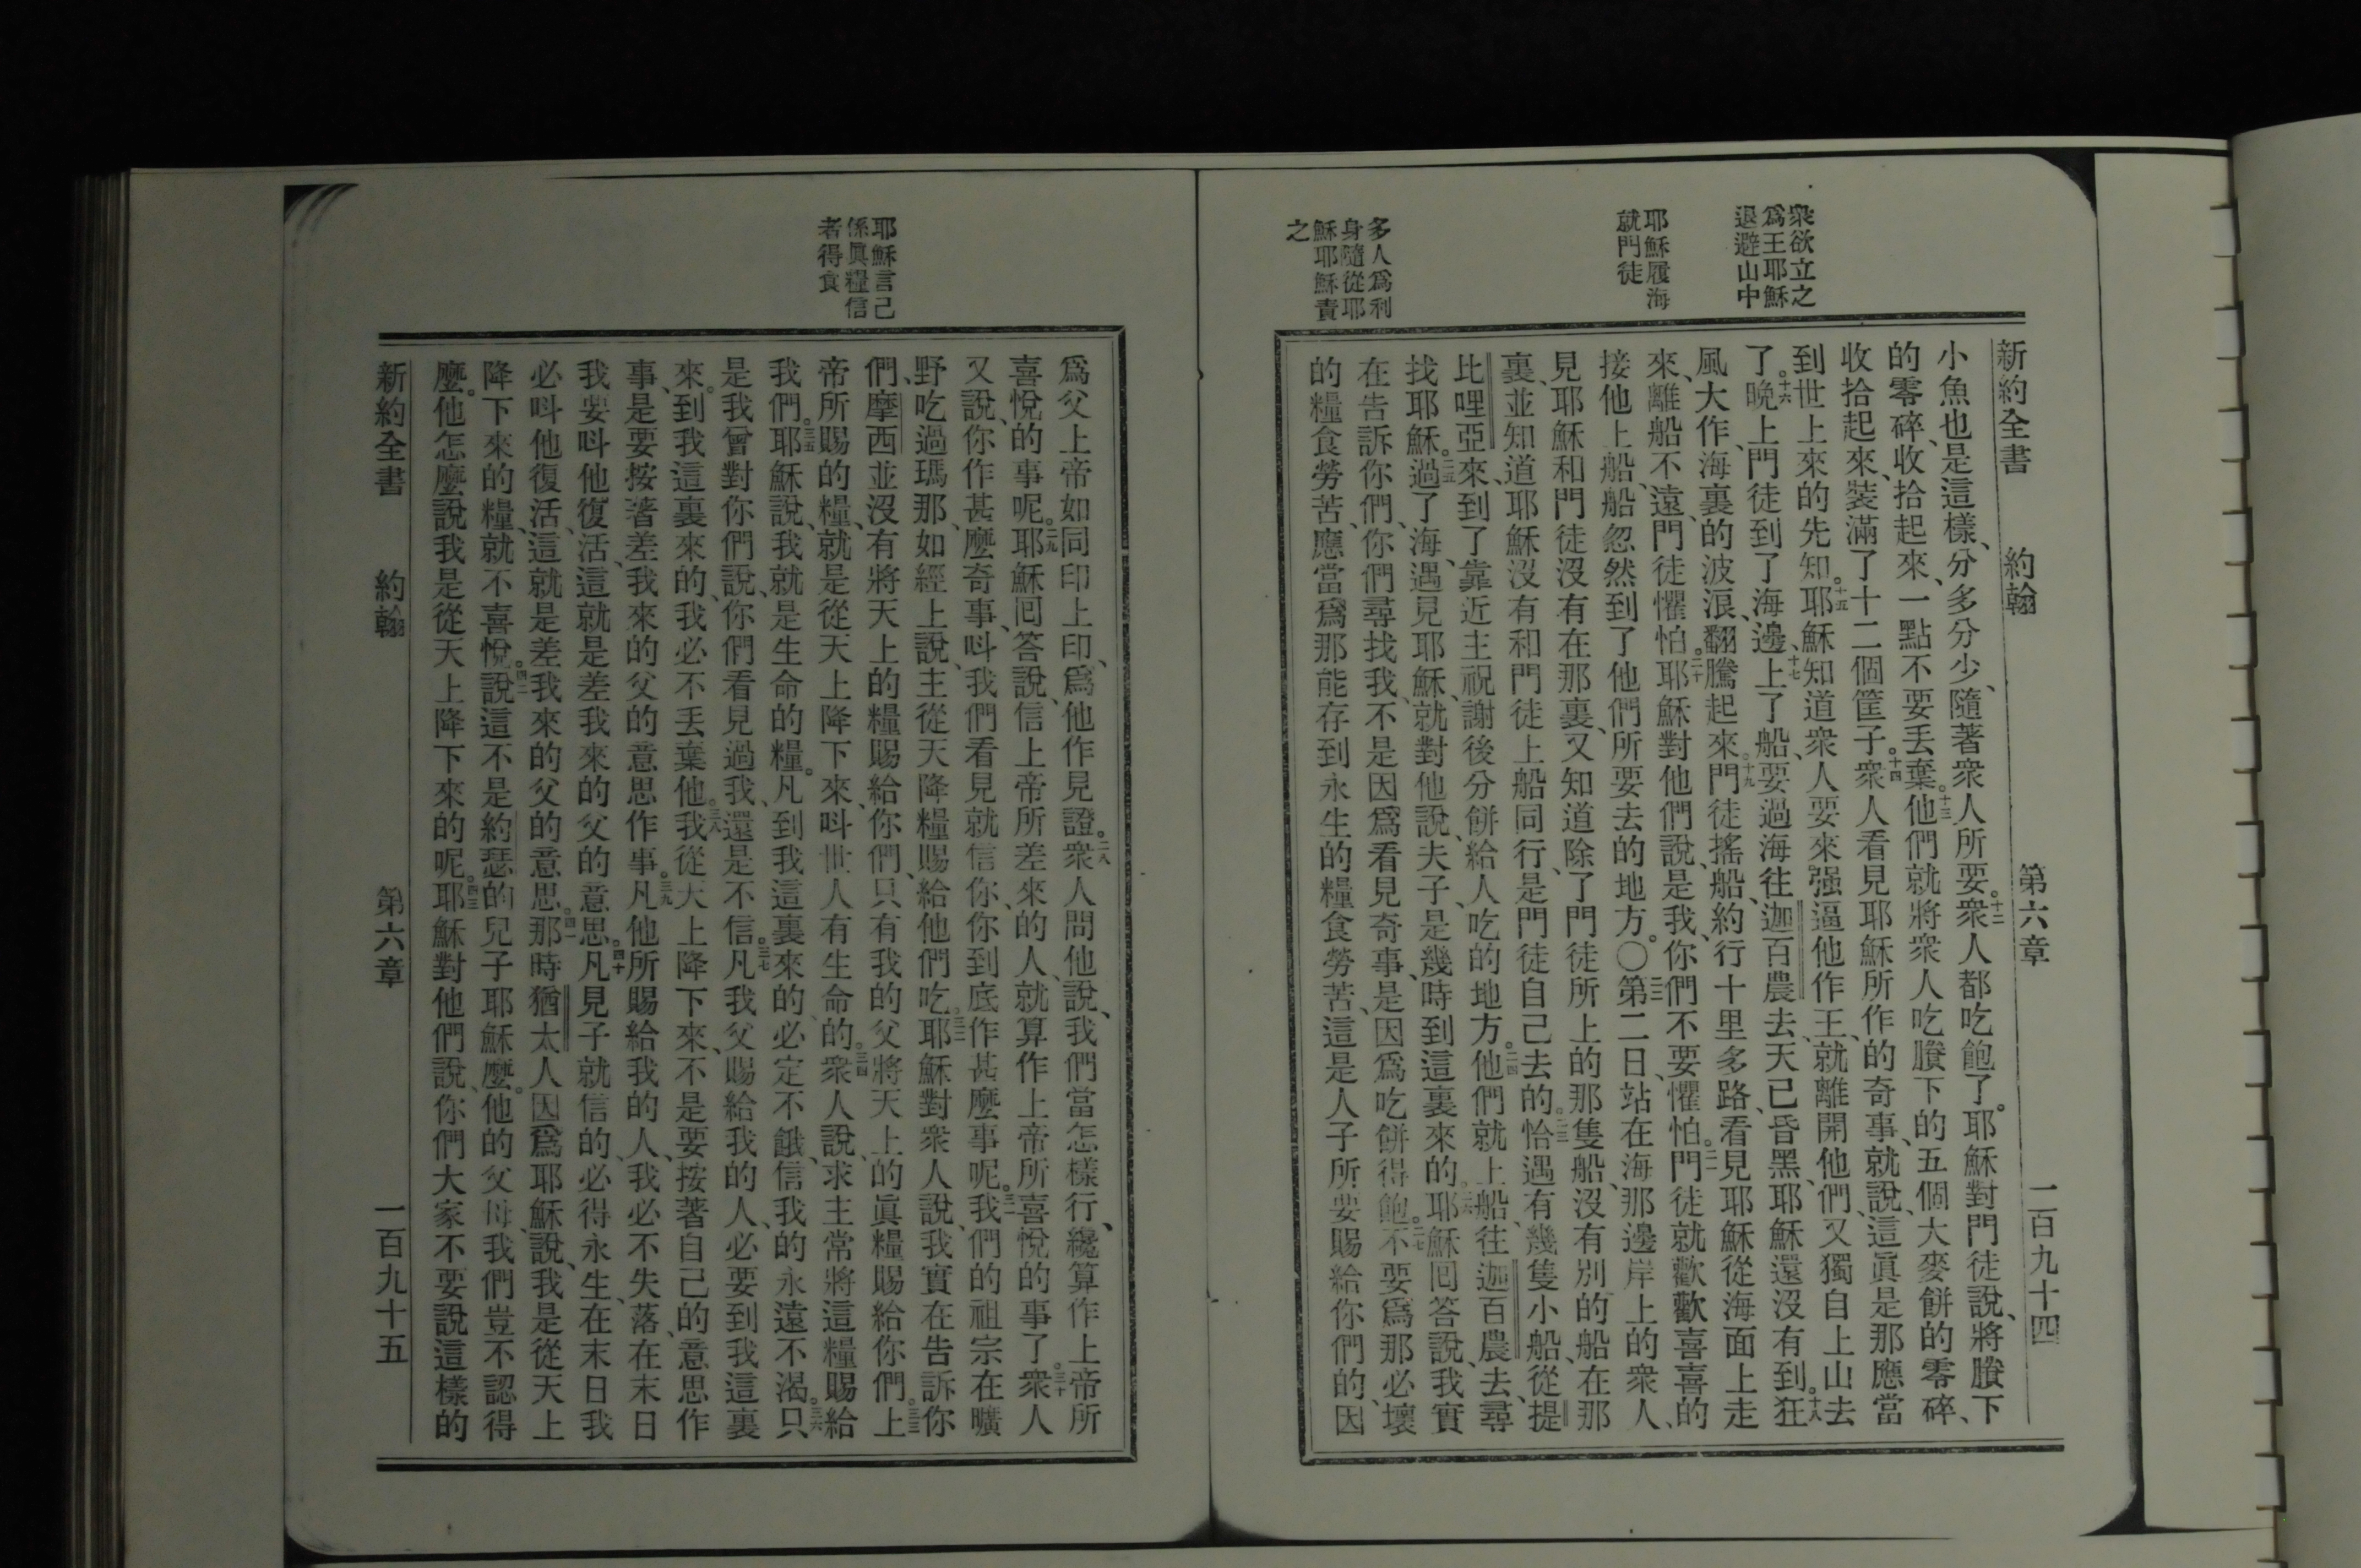 衆欲立之
爲王耶穌
退避山中
耶穌履海
就門徒
多人爲利
身隨從耶
穌耶穌責
之
新約全書 約翰 第六章 二百九十四
小魚也是這樣、分多分少、隨著衆人所要。十二衆人都吃飽了。耶穌對門徒說、將賸下
的零碎、收拾起來、一點不要丟棄。十三他們就將衆人吃賸下的五個大麥餅的零碎、
收拾起來、裝滿了十二個筐子。十四衆人看見耶穌所作的奇事、就說、這眞是那應當
到世上來的先知。十五耶穌知道衆人要來强逼他作王、就離開他們、又獨自上山去
了。十六晚上門徒到了海邊、十七上了船、要過海往迦百農去、天已昏黑、耶穌還沒有到。十八狂
風大作、海裏的波浪、翻騰起來。十九門徒搖船、約行十里多路、看見耶穌從海面上走
來、離船不遠、門徒懼怕。二十耶穌對他們說、是我、你們不要懼怕。二一門徒就歡歡喜喜的
接他上船、船忽然到了他們所要去的地方。〇二二第二日站在海那邊岸上的衆人、
見耶穌和門徒沒有在那裏、又知道除了門徒所上的那隻船、沒有別的船在那
裏、並知道耶穌沒有和門徒上船同行、是門徒自己去的。二三恰遇有幾隻小船、從提
比哩亞來、到了靠近主祝謝後分餅給人吃的地方。二四他們就上船、往迦百農去、尋
找耶穌。二五過了海、遇見耶穌、就對他說、夫子、是幾時到這裏來的。二六耶穌囘答說、我實
在告訴你們、你們尋找我、不是因爲看見奇事、是因爲吃餅得飽。二七不要爲那必壞
的糧食勞苦、應當爲那能存到永生的糧食勞苦、這是人子所要賜給你們的、因
耶穌言己
係眞糧信
者得食
爲父上帝如同印上印、爲他作見證。二八衆人問他、說、我們當怎樣行、纔算作上帝所
喜悅的事呢。二九耶穌囘答說、信上帝所差來的人、就算作上帝所喜悅的事了。三十衆人
又說、你作甚麼奇事、呌我們看見就信你、你到底作甚麼事呢。三一我們的祖宗在曠
野吃過瑪那、如經上說、主從天降糧賜給他們吃。三二耶穌對衆人說、我實在告訴你
們、摩西並沒有將天上的糧賜給你們、只有我的父將天上的眞糧賜給你們。三三上
帝所賜的糧、就是從天上降下來、呌世人有生命的。三四衆人說、求主常將這糧賜給
我們。三五耶穌說、我就是生命的糧。凡到我這裏來的、必定不餓、信我的永遠不渴。三六只
是我曾對你們說、你們看見過我、還是不信。三七凡我父賜給我的人、必要到我這裏
來。到我這裏來的、我必不丟棄他。三八我從天上降下來、不是要按著自己的意思作
事、是要按著差我來的父的意思作事。三九凡他所賜給我的人、我必不失落、在末日
我要呌他復活、這就是差我來的父的意思。四十凡見子就信的、必得永生、在末日我
必呌他復活、這就是差我來的父的意思。四一那時猶太人因爲耶穌說、我是從天上
降下來的糧、就不喜悅。四二說這不是約瑟的兒子耶穌麼。他的父母、我們豈不認得
麼。他怎麼說我是從天上降下來的呢。四三耶穌對他們說、你們大家不要說這樣的
新約全書 約翰 第六章 二百九十五